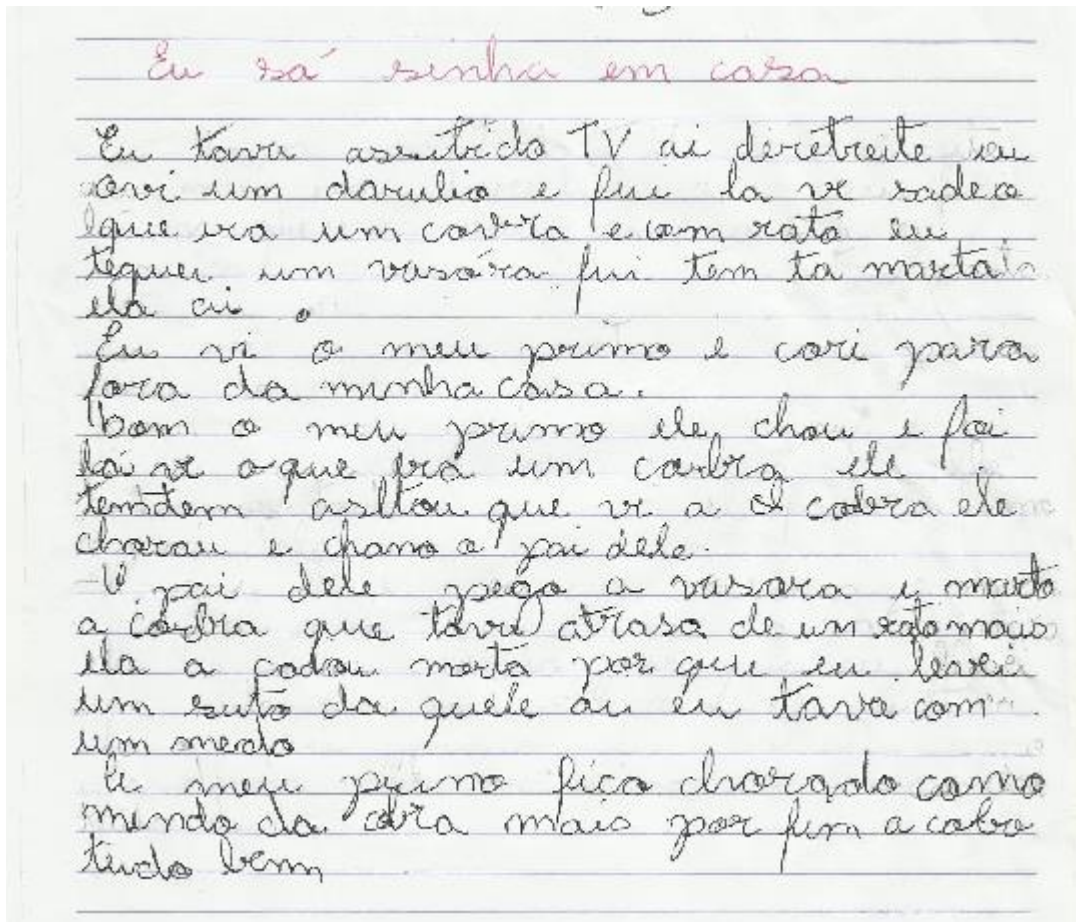 Eu sá sinha em casa
Eu tava assitido TV ai deretreite eu
ovi um darulio e fui la ve sadeo
que era um cobra e com rato eu
tequei um vasora fui tem ta marta
ela ai.
Eu vi o meu primo e cori para
fora da minha casa.
bom o meu primo ele chou e foi
lá ve oque era um carbra ele
temdem asltou que ve a cobra ele
chorau e chamo o pai dele.
O pai dele pego a vasora e marto
a cobra que tava atrasa de um rato mais
ela a cobou morta por que eu levei
um suto da quele au eu tava com
um medo
E meu primo fico chorado como
mendo da cobra mais por fim a cabo
tudo bem